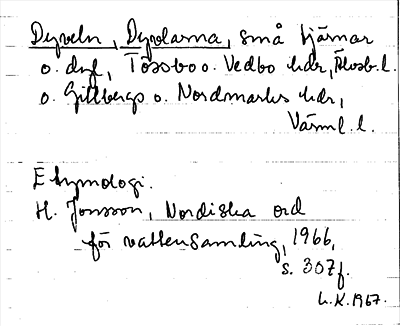 Dyveln, Dyvlarna, små tjärnar
o. dyl, Tössbo o. Vedbo hdr, Älvsb. l.
o. Gillbergs o. Nordmarks hdr,
Värml. l.
Etymologi.
H. Jonsson, Nordiska ord
för vattensamling, 1966,
s. 307f.
L.K. 1967.